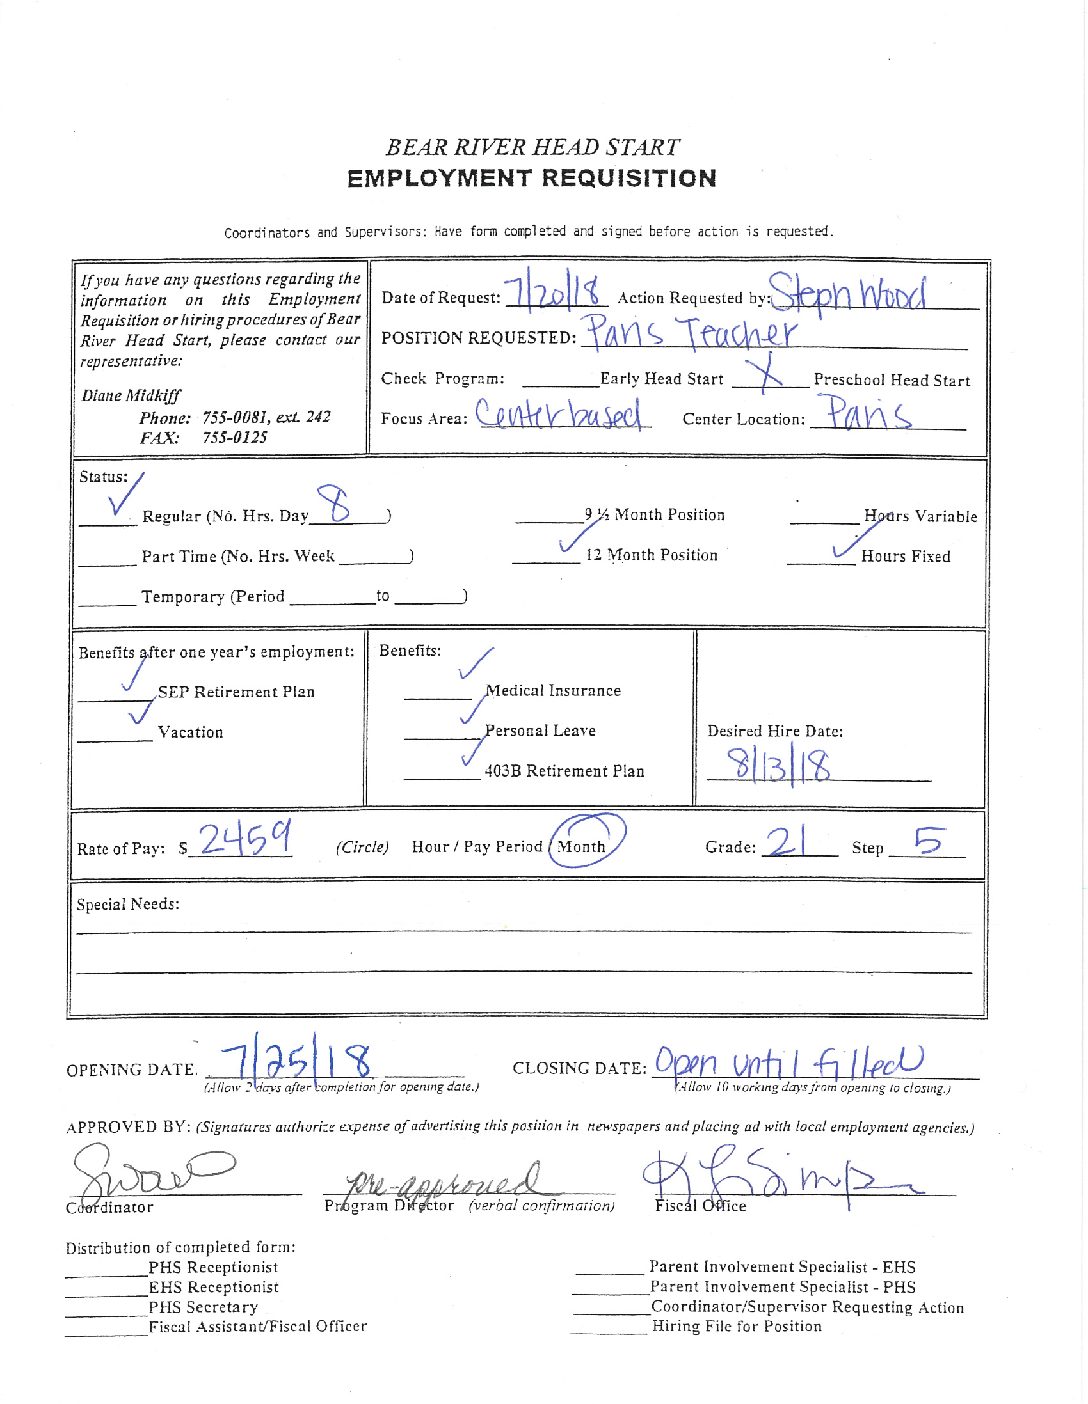 BEAR RIVER HEAD START
EMPLOYMENT REQUISITION
Coordinators and Supervisors: Have form completed and signed before action is requested.
If you have any questions regarding the
information on this Employment
Requisition or hiring procedures of Bear
River Head Start, please contact our
representative:
Diane Midkiff
Phone: 755-0081, ext. 242
FAX: 755-0125
Date of Request: 7/20/18 Action Requested by: Steph Wood
POSITION REQUESTED: Paris Teacher
Check Program: ______ Early Head Start X Preschool Head Start
Focus Area: Center based Center Location: Paris
Status:
✓ Regular (No. Hrs. Day 8 ) ______ 9 ½ Month Position ______ Hours Variable
______ Part Time (No. Hrs. Week ______) ✓ 12 Month Position ✓ Hours Fixed
______ Temporary (Period ______ to ______)
Benefits after one year's employment:
✓ SEP Retirement Plan
✓ Vacation
Benefits:
✓ Medical Insurance
✓ Personal Leave
✓ 403B Retirement Plan
Desired Hire Date:
8/13/18
Rate of Pay: $ 2459 (Circle) Hour / Pay Period / Month Grade: 21 Step 5
Special Needs:
OPENING DATE: 7/25/18 CLOSING DATE: Open until filled
(Allow 2 days after completion for opening date.) (Allow 10 working days from opening to closing.)
APPROVED BY: (Signatures authorize expense of advertising this position in newspapers and placing ad with local employment agencies.)
pre-approved
Coordinator Program Director (verbal confirmation) Fiscal Office
Distribution of completed form:
______ PHS Receptionist ______ Parent Involvement Specialist - EHS
______ EHS Receptionist ______ Parent Involvement Specialist - PHS
______ PHS Secretary ______ Coordinator/Supervisor Requesting Action
______ Fiscal Assistant/Fiscal Officer ______ Hiring File for Position